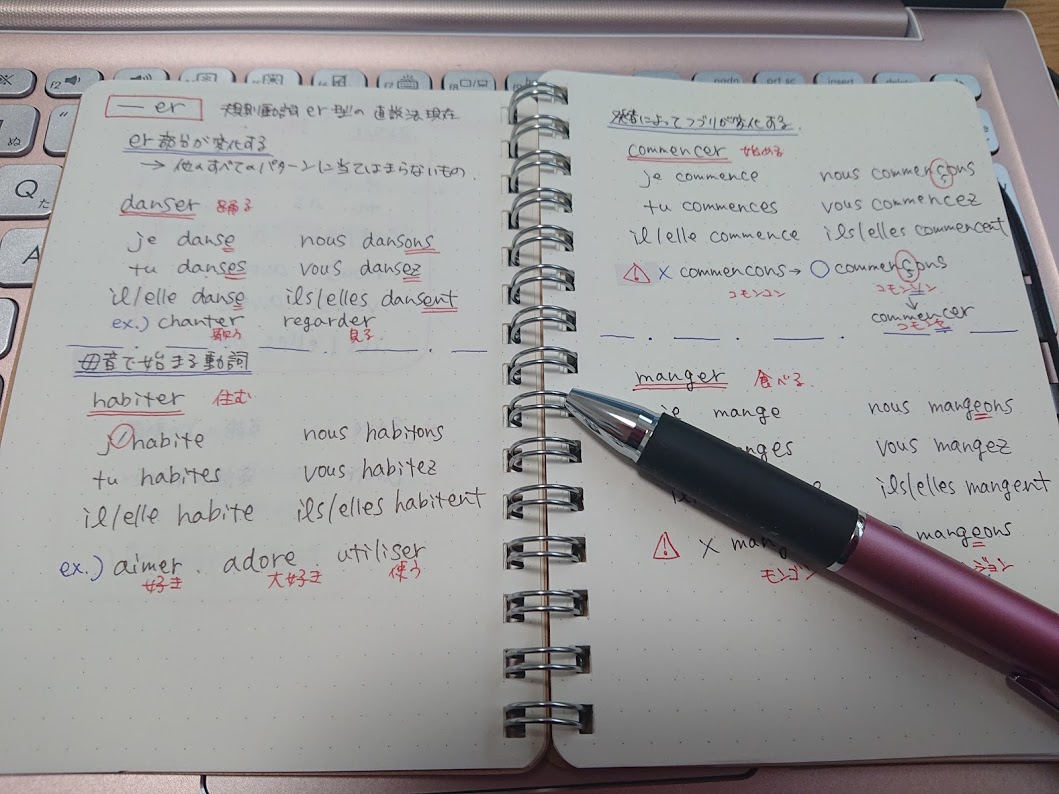 — er 規則動詞 er 型の 直説法現在
er 部分が変化する
→ 他のすべてのパターンに当てはまらないもの.
danser 踊る
je danse nous dansons
tu danses vous dansez
il/elle danse ils/elles dansent
ex.) chanter regarder
歌う 見る
母音で始まる動詞
habiter 住む
j'habite nous habitons
tu habites vous habitez
il/elle habite ils/elles habitent
ex.) aimer. adore. utiliser
好き 大好き 使う
発音によってつづりが変化する.
commencer 始める
je commence nous commençons
tu commences vous commencez
il/elle commence ils/elles commencent
⚠ × commencons → ○ commençons
コモンコン コモンソン
↓
commencer
コモンセ
manger 食べる.
je mange nous mangeons
vous mangez
ils/elles mangent
⚠ × mangeons
モンゴン ジョン
Q
た
A
ぬ
F2
prt sc
insert
delete